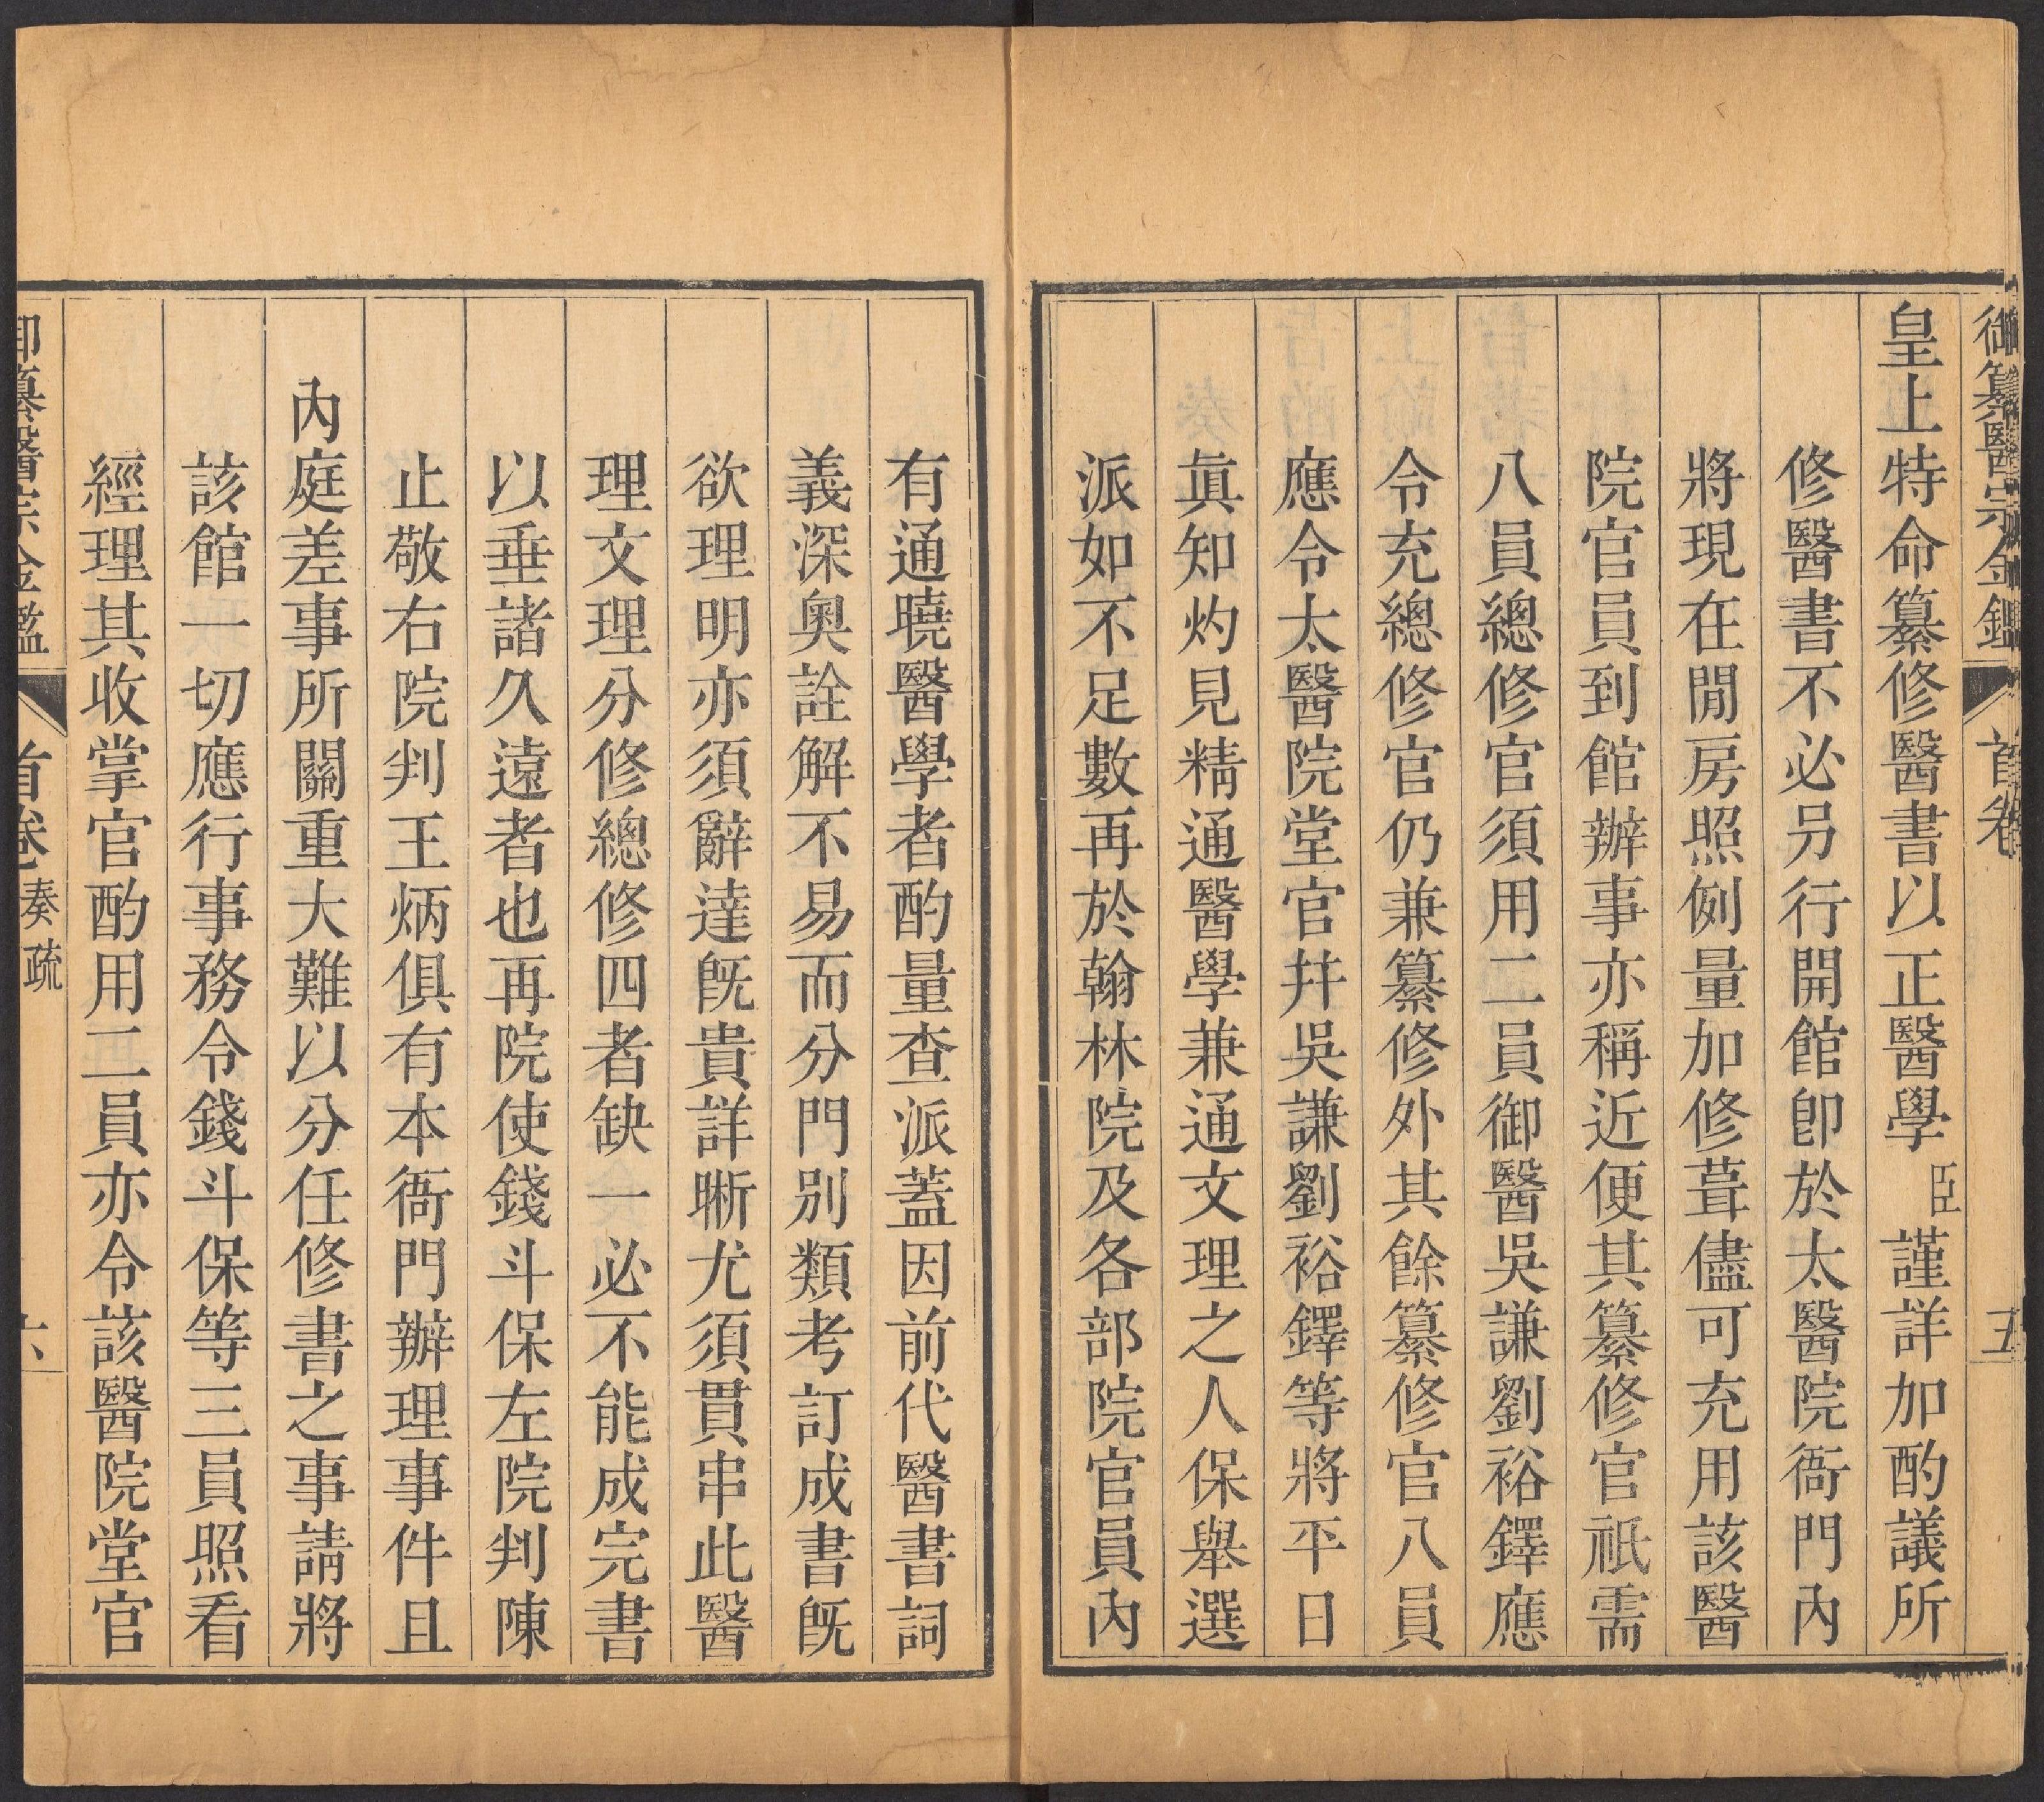 御纂醫宗金鑑 首卷 五
皇上特命纂修醫書以正醫學臣謹詳加酌議所
修醫書不必另行開館卽於太醫院衙門內
將現在閒房照例量加修葺儘可充用該醫
院官員到館辦事亦稱近便其纂修官祇需
八員總修官須用二員御醫吳謙劉裕鐸應
令充總修官仍兼纂修外其餘纂修官八員
應令太醫院堂官幷吳謙劉裕鐸等將平日
眞知灼見精通醫學兼通文理之人保舉選
派如不足數再於翰林院及各部院官員內
有通曉醫學者酌量查派蓋因前代醫書詞
義深奧詮解不易而分門別類考訂成書旣
欲理明亦須辭達旣貴詳晰尤須貫串此醫
理文理分修總修四者缺一必不能成完書
以垂諸久遠者也再院使錢斗保左院判陳
止敬右院判王炳俱有本衙門辦理事件且
內庭差事所關重大難以分任修書之事請將
該館一切應行事務令錢斗保等三員照看
經理其收掌官酌用二員亦令該醫院堂官
御纂醫宗金鑑 首卷 奏疏 六